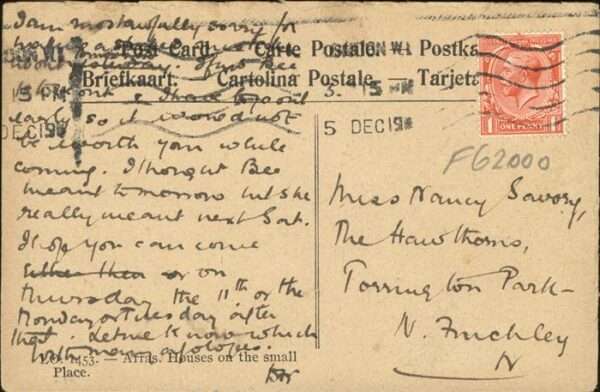 I am most awfully sorry for
Post Card. Carte Postale. Postka
Saturday.
Briefkaart. Cartolina Postale. — Tarjeta
LONDON W.1
5. 15 PM
5 DEC 19
I have to go out
early so it would not
be worth you while
coming. I thought Bee
meant tomorrow but she
really meant next Sat.
I hope you can come
either then or on
Thursday the 11th or the
Monday or Tuesday after
that. Let me know which
With many apologies.
LO. 1453. — Arras. Houses on the small
Place.
ONE PENNY
F62000
Miss Nancy Savory,
The Hawthorns,
Torrington Park
N. Finchley
N